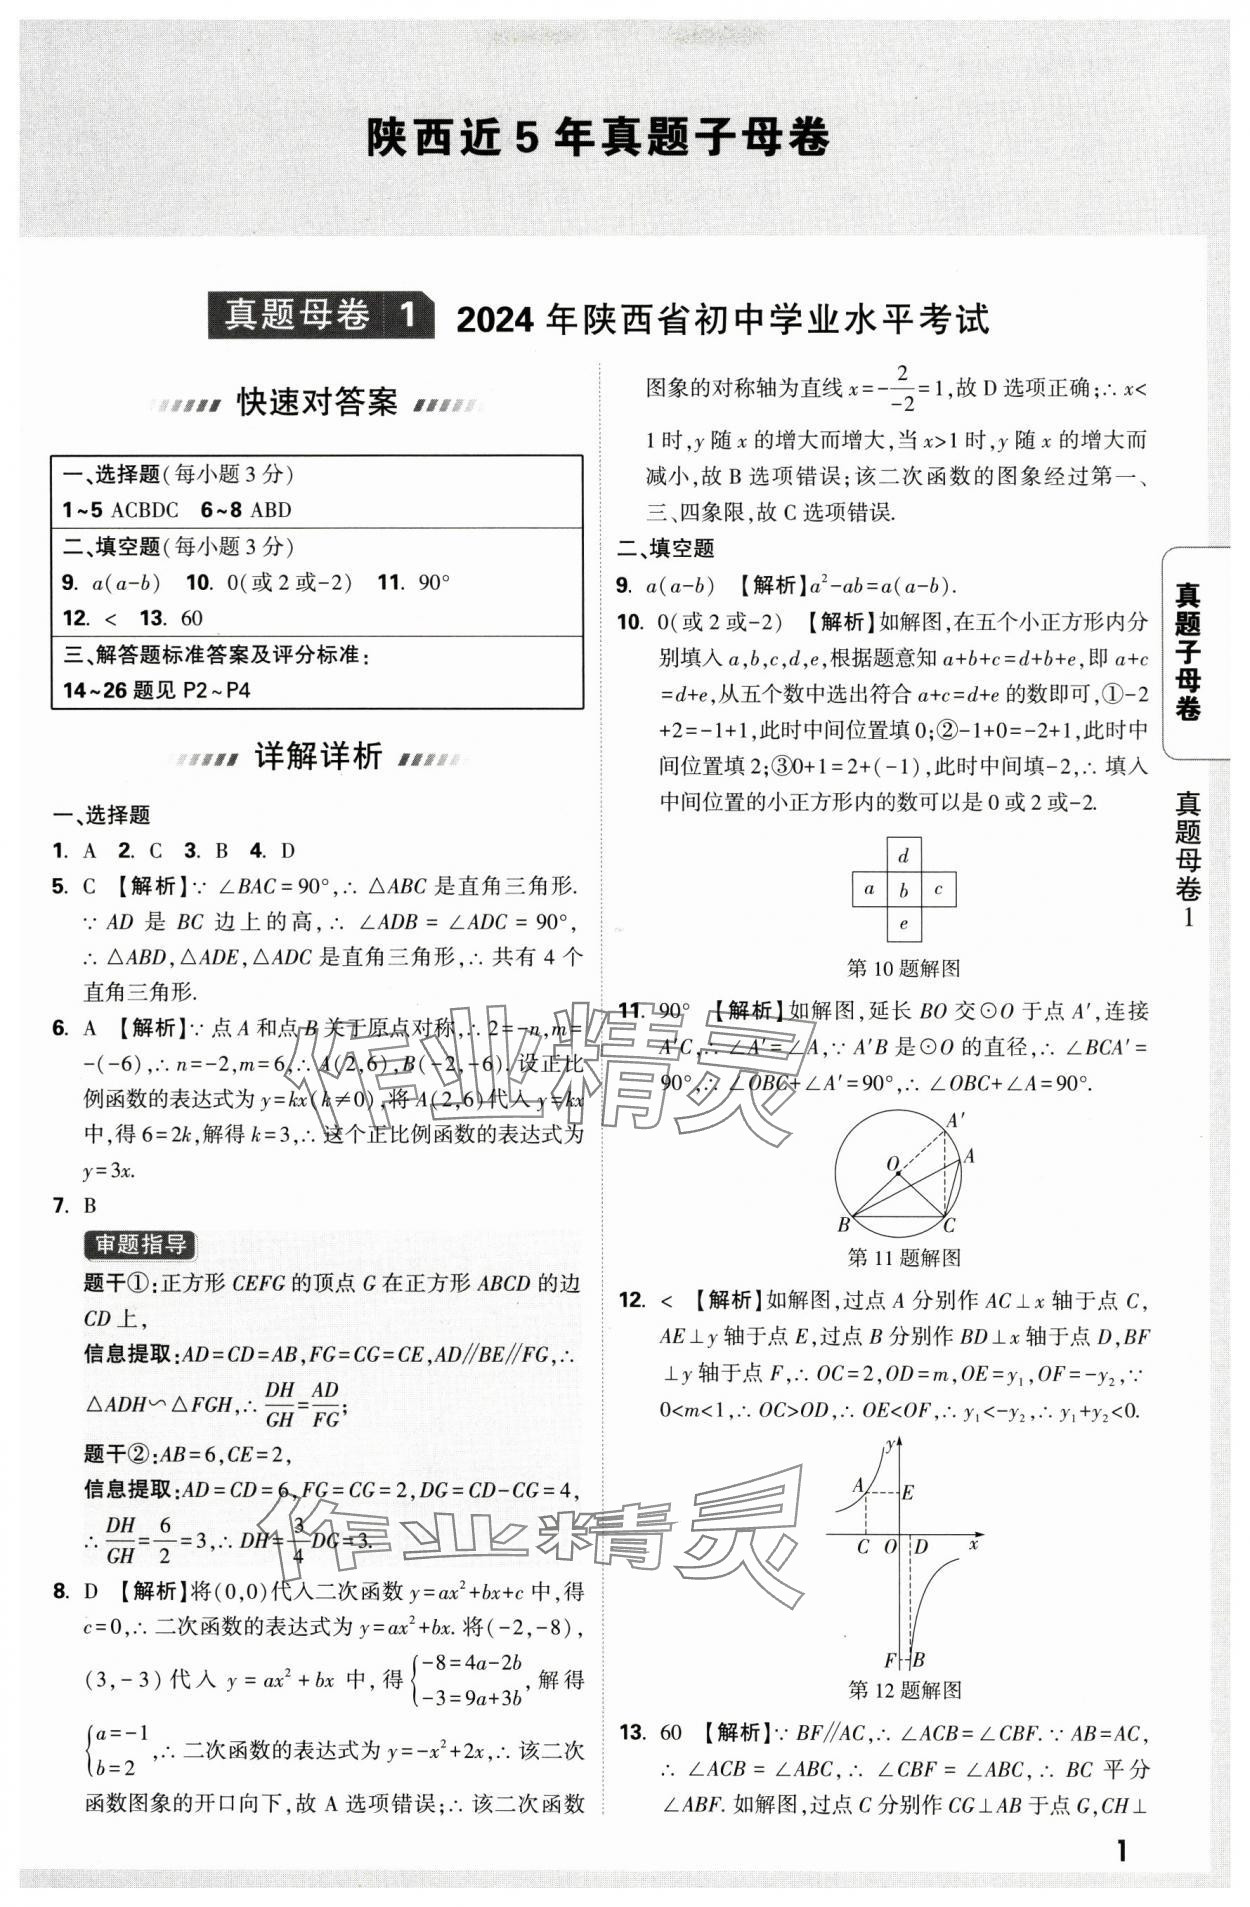 陕西近5年真题子母卷
真题母卷 1 2024年陕西省初中学业水平考试
快速对答案
一、选择题(每小题3分)
1~5 ACBDC 6~8 ABD
二、填空题(每小题3分)
9. a(a-b) 10. 0(或2或-2) 11. 90°
12. < 13. 60
三、解答题标准答案及评分标准:
14~26题见P2~P4
详解详析
一、选择题
1. A 2. C 3. B 4. D
5. C 【解析】∵ ∠BAC=90°,∴ △ABC是直角三角形.
∵ AD 是 BC 边上的高,∴ ∠ADB = ∠ADC = 90°,
∴ △ABD,△ADE,△ADC是直角三角形,∴ 共有4个
直角三角形.
6. A 【解析】∵ 点A和点B关于原点对称,∴ 2=-n,m=
-(-6),∴ n=-2,m=6,∴ A(2,6),B(-2,-6).设正比
例函数的表达式为y=kx(k≠0),将A(2,6)代入y=kx
中,得6=2k,解得k=3,∴ 这个正比例函数的表达式为
y=3x.
7. B
审题指导
题干①:正方形CEFG的顶点G在正方形ABCD的边
CD上,
信息提取:AD=CD=AB,FG=CG=CE,AD∥BE∥FG,∴
△ADH∽△FGH,∴ DH/GH=AD/FG;
题干②:AB=6,CE=2,
信息提取:AD=CD=6,FG=CG=2,DG=CD-CG=4,
∴ DH/GH=6/2=3,∴ DH=3/4DG=3.
8. D 【解析】将(0,0)代入二次函数y=ax²+bx+c中,得
c=0,∴ 二次函数的表达式为y=ax²+bx.将(-2,-8),
(3,-3)代入 y=ax²+bx 中,得{-8=4a-2b -3=9a+3b,解得
{a=-1 b=2,∴ 二次函数的表达式为y=-x²+2x,∴ 该二次
函数图象的开口向下,故A选项错误;∴ 该二次函数
图象的对称轴为直线x=-2/-2=1,故D选项正确;∴ x<
1时,y随x的增大而增大,当x>1时,y随x的增大而
减小,故B选项错误;该二次函数的图象经过第一、
三、四象限,故C选项错误.
二、填空题
9. a(a-b) 【解析】a²-ab=a(a-b).
10. 0(或2或-2) 【解析】如解图,在五个小正方形内分
别填入a,b,c,d,e,根据题意知a+b+c=d+b+e,即a+c
=d+e,从五个数中选出符合a+c=d+e的数即可,①-2
+2=-1+1,此时中间位置填0;②-1+0=-2+1,此时中
间位置填2;③0+1=2+(-1),此时中间填-2,∴ 填入
中间位置的小正方形内的数可以是0或2或-2.
d
a b c
e
第10题解图
11. 90° 【解析】如解图,延长BO交⊙O于点A′,连接
A′C,∴ ∠A′=∠A,∵ A′B是⊙O的直径,∴ ∠BCA′=
90°,∴ ∠OBC+∠A′=90°,∴ ∠OBC+∠A=90°.
A′
A
O
B C
第11题解图
12. < 【解析】如解图,过点A分别作AC⊥x轴于点C,
AE⊥y轴于点E,过点B分别作BD⊥x轴于点D,BF
⊥y轴于点F,∴ OC=2,OD=m,OE=y₁,OF=-y₂,∵
0<m<1,∴ OC>OD,∴ OE<OF,∴ y₁<-y₂,∴ y₁+y₂<0.
y
A E
C O D x
F B
第12题解图
13. 60 【解析】∵ BF∥AC,∴ ∠ACB=∠CBF.∵ AB=AC,
∴ ∠ACB = ∠ABC,∴ ∠CBF = ∠ABC,∴ BC 平分
∠ABF.如解图,过点C分别作CG⊥AB于点G,CH⊥
真题子母卷
真题母卷1
1
作业精灵
作业精灵